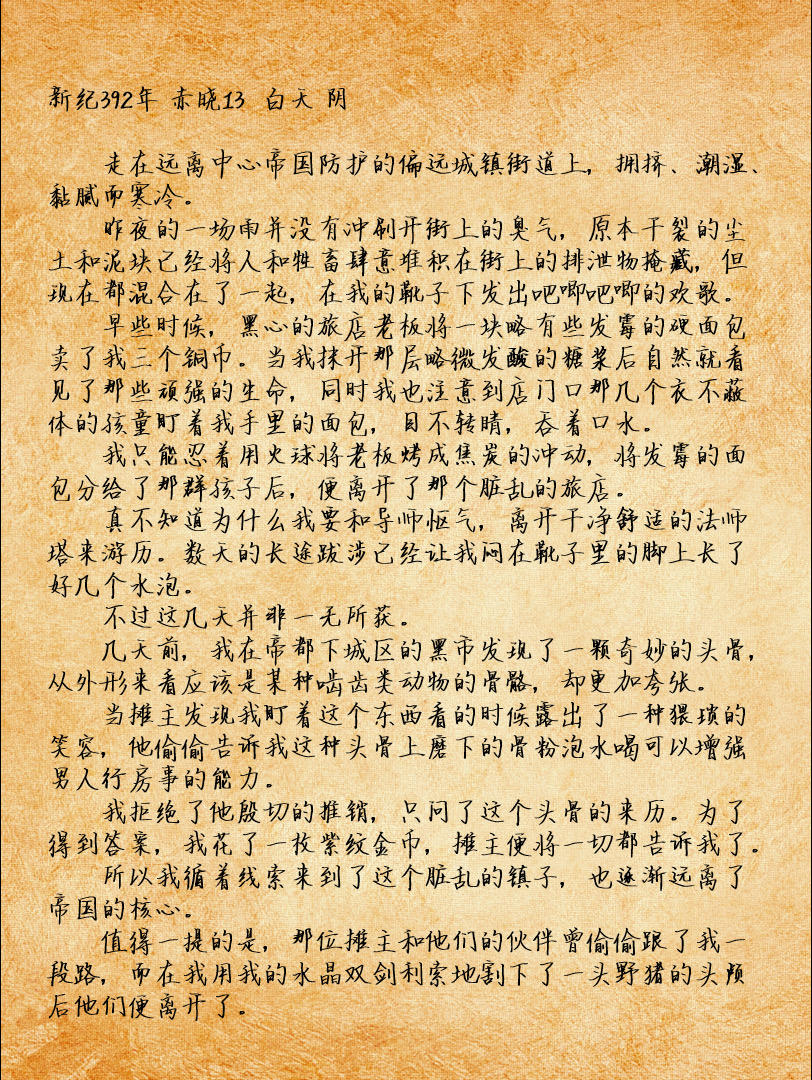 新纪392年 赤晓13 白天 阴
走在远离中心帝国防护的偏远城镇街道上，拥挤、潮湿、
黏腻而寒冷。
昨夜的一场雨并没有冲刷开街上的臭气，原本干裂的尘
土和泥块已经将人和牲畜肆意堆积在街上的排泄物掩藏，但
现在都混合在了一起，在我的靴子下发出吧唧吧唧的欢歌。
早些时候，黑心的旅店老板将一块略有些发霉的硬面包
卖了我三个铜币。当我抹开那层略微发酸的糖浆后自然就看
见了那些顽强的生命，同时我也注意到店门口那几个衣不蔽
体的孩童盯着我手里的面包，目不转睛，吞着口水。
我只能忍着用火球将老板烤成焦炭的冲动，将发霉的面
包分给了那群孩子后，便离开了那个脏乱的旅店。
真不知道为什么我要和导师怄气，离开干净舒适的法师
塔来游历。数天的长途跋涉已经让我闷在靴子里的脚上长了
好几个水泡。
不过这几天并非一无所获。
几天前，我在帝都下城区的黑市发现了一颗奇妙的头骨，
从外形来看应该是某种啮齿类动物的骨骼，却更加夸张。
当摊主发现我盯着这个东西看的时候露出了一种猥琐的
笑容，他偷偷告诉我这种头骨上磨下的骨粉泡水喝可以增强
男人行房事的能力。
我拒绝了他殷切的推销，只问了这个头骨的来历。为了
得到答案，我花了一枚紫纹金币，摊主便将一切都告诉我了。
所以我循着线索来到了这个脏乱的镇子，也逐渐远离了
帝国的核心。
值得一提的是，那位摊主和他们的伙伴曾偷偷跟了我一
段路，而在我用我的水晶双剑利索地割下了一头野猪的头颅
后他们便离开了。